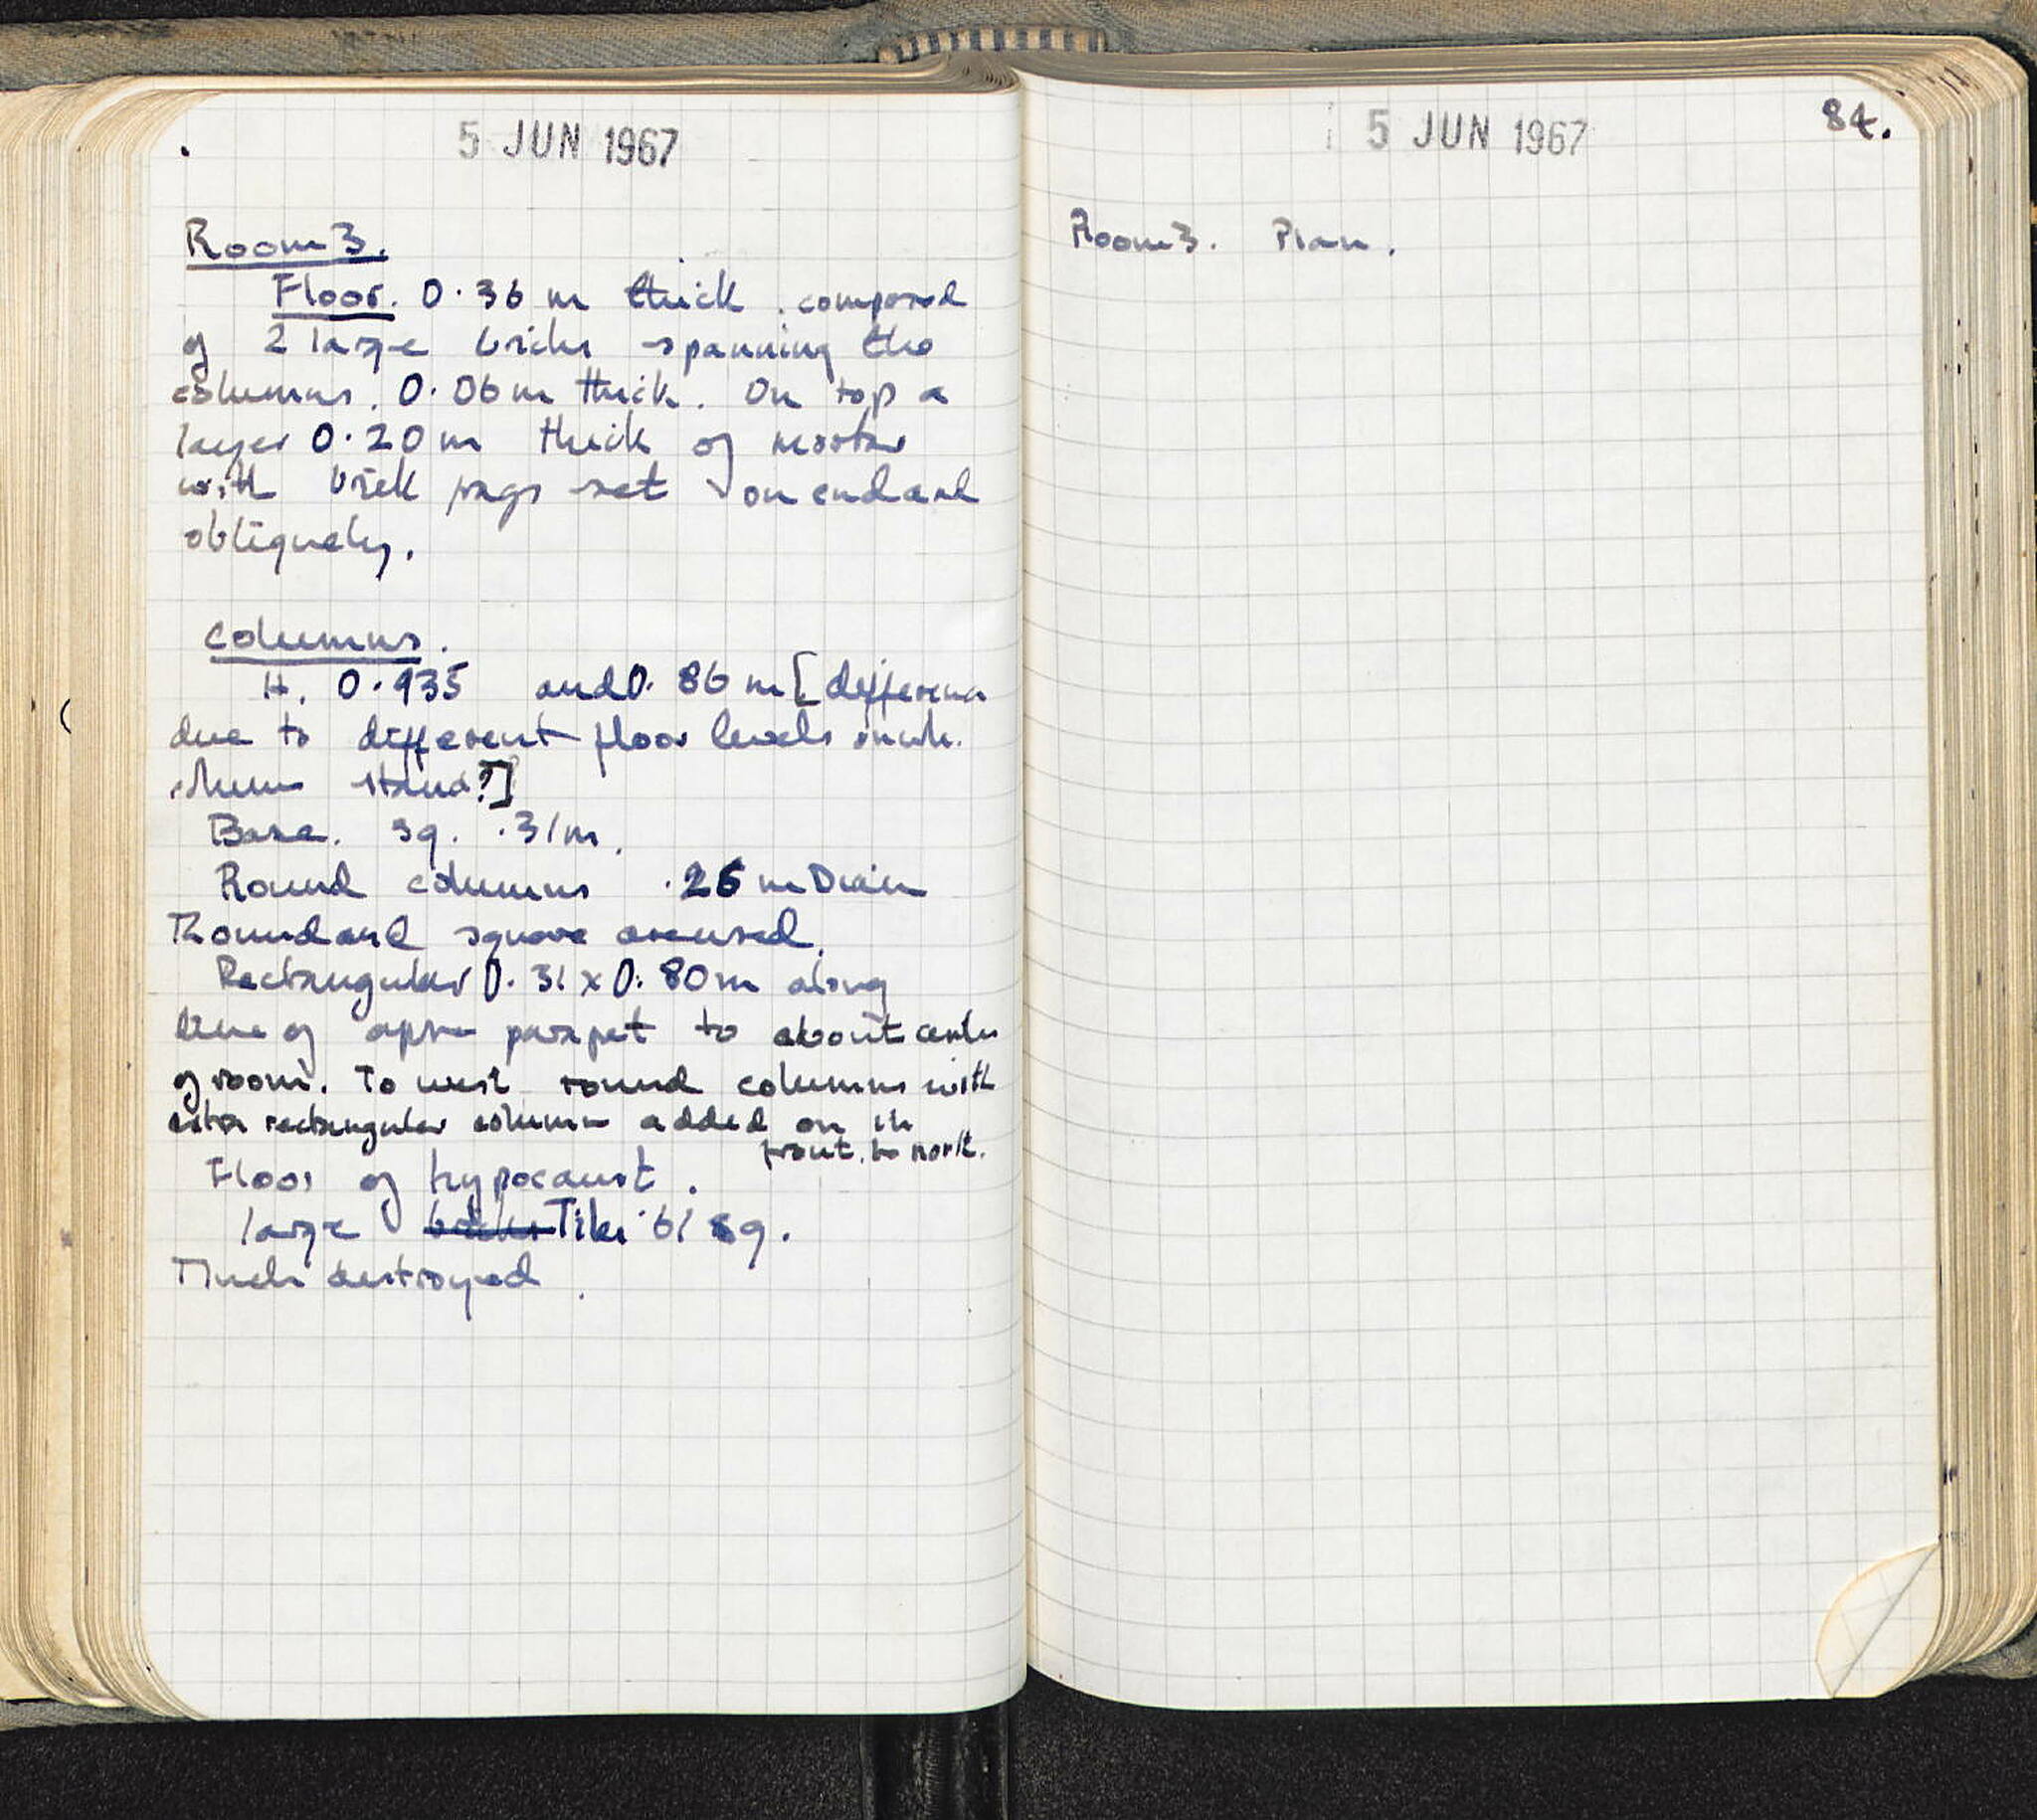 5 JUN 1967
Room 3.
Floor. 0.36 m thick. composed
of 2 large bricks spanning the
columns. 0.06 m thick. On top a
layer 0.20 m thick of mortar
with brick frags set on end and
obliquely.
Columns.
H. 0.935 and 0.86 m [difference
due to different floor levels
stand?]
Base. sq. .31m.
Round columns .26 m Diam
Round and square are used.
Rectangular 0.31 x 0.80m along
line of apse parapet to about center
of room. To west round columns with
extra rectangular column added on in
front. to north.
Floor of hypocaust.
large bricks Tiles .61 sq.
Much destroyed.
5 JUN 1967
84.
Room 3. Plan.